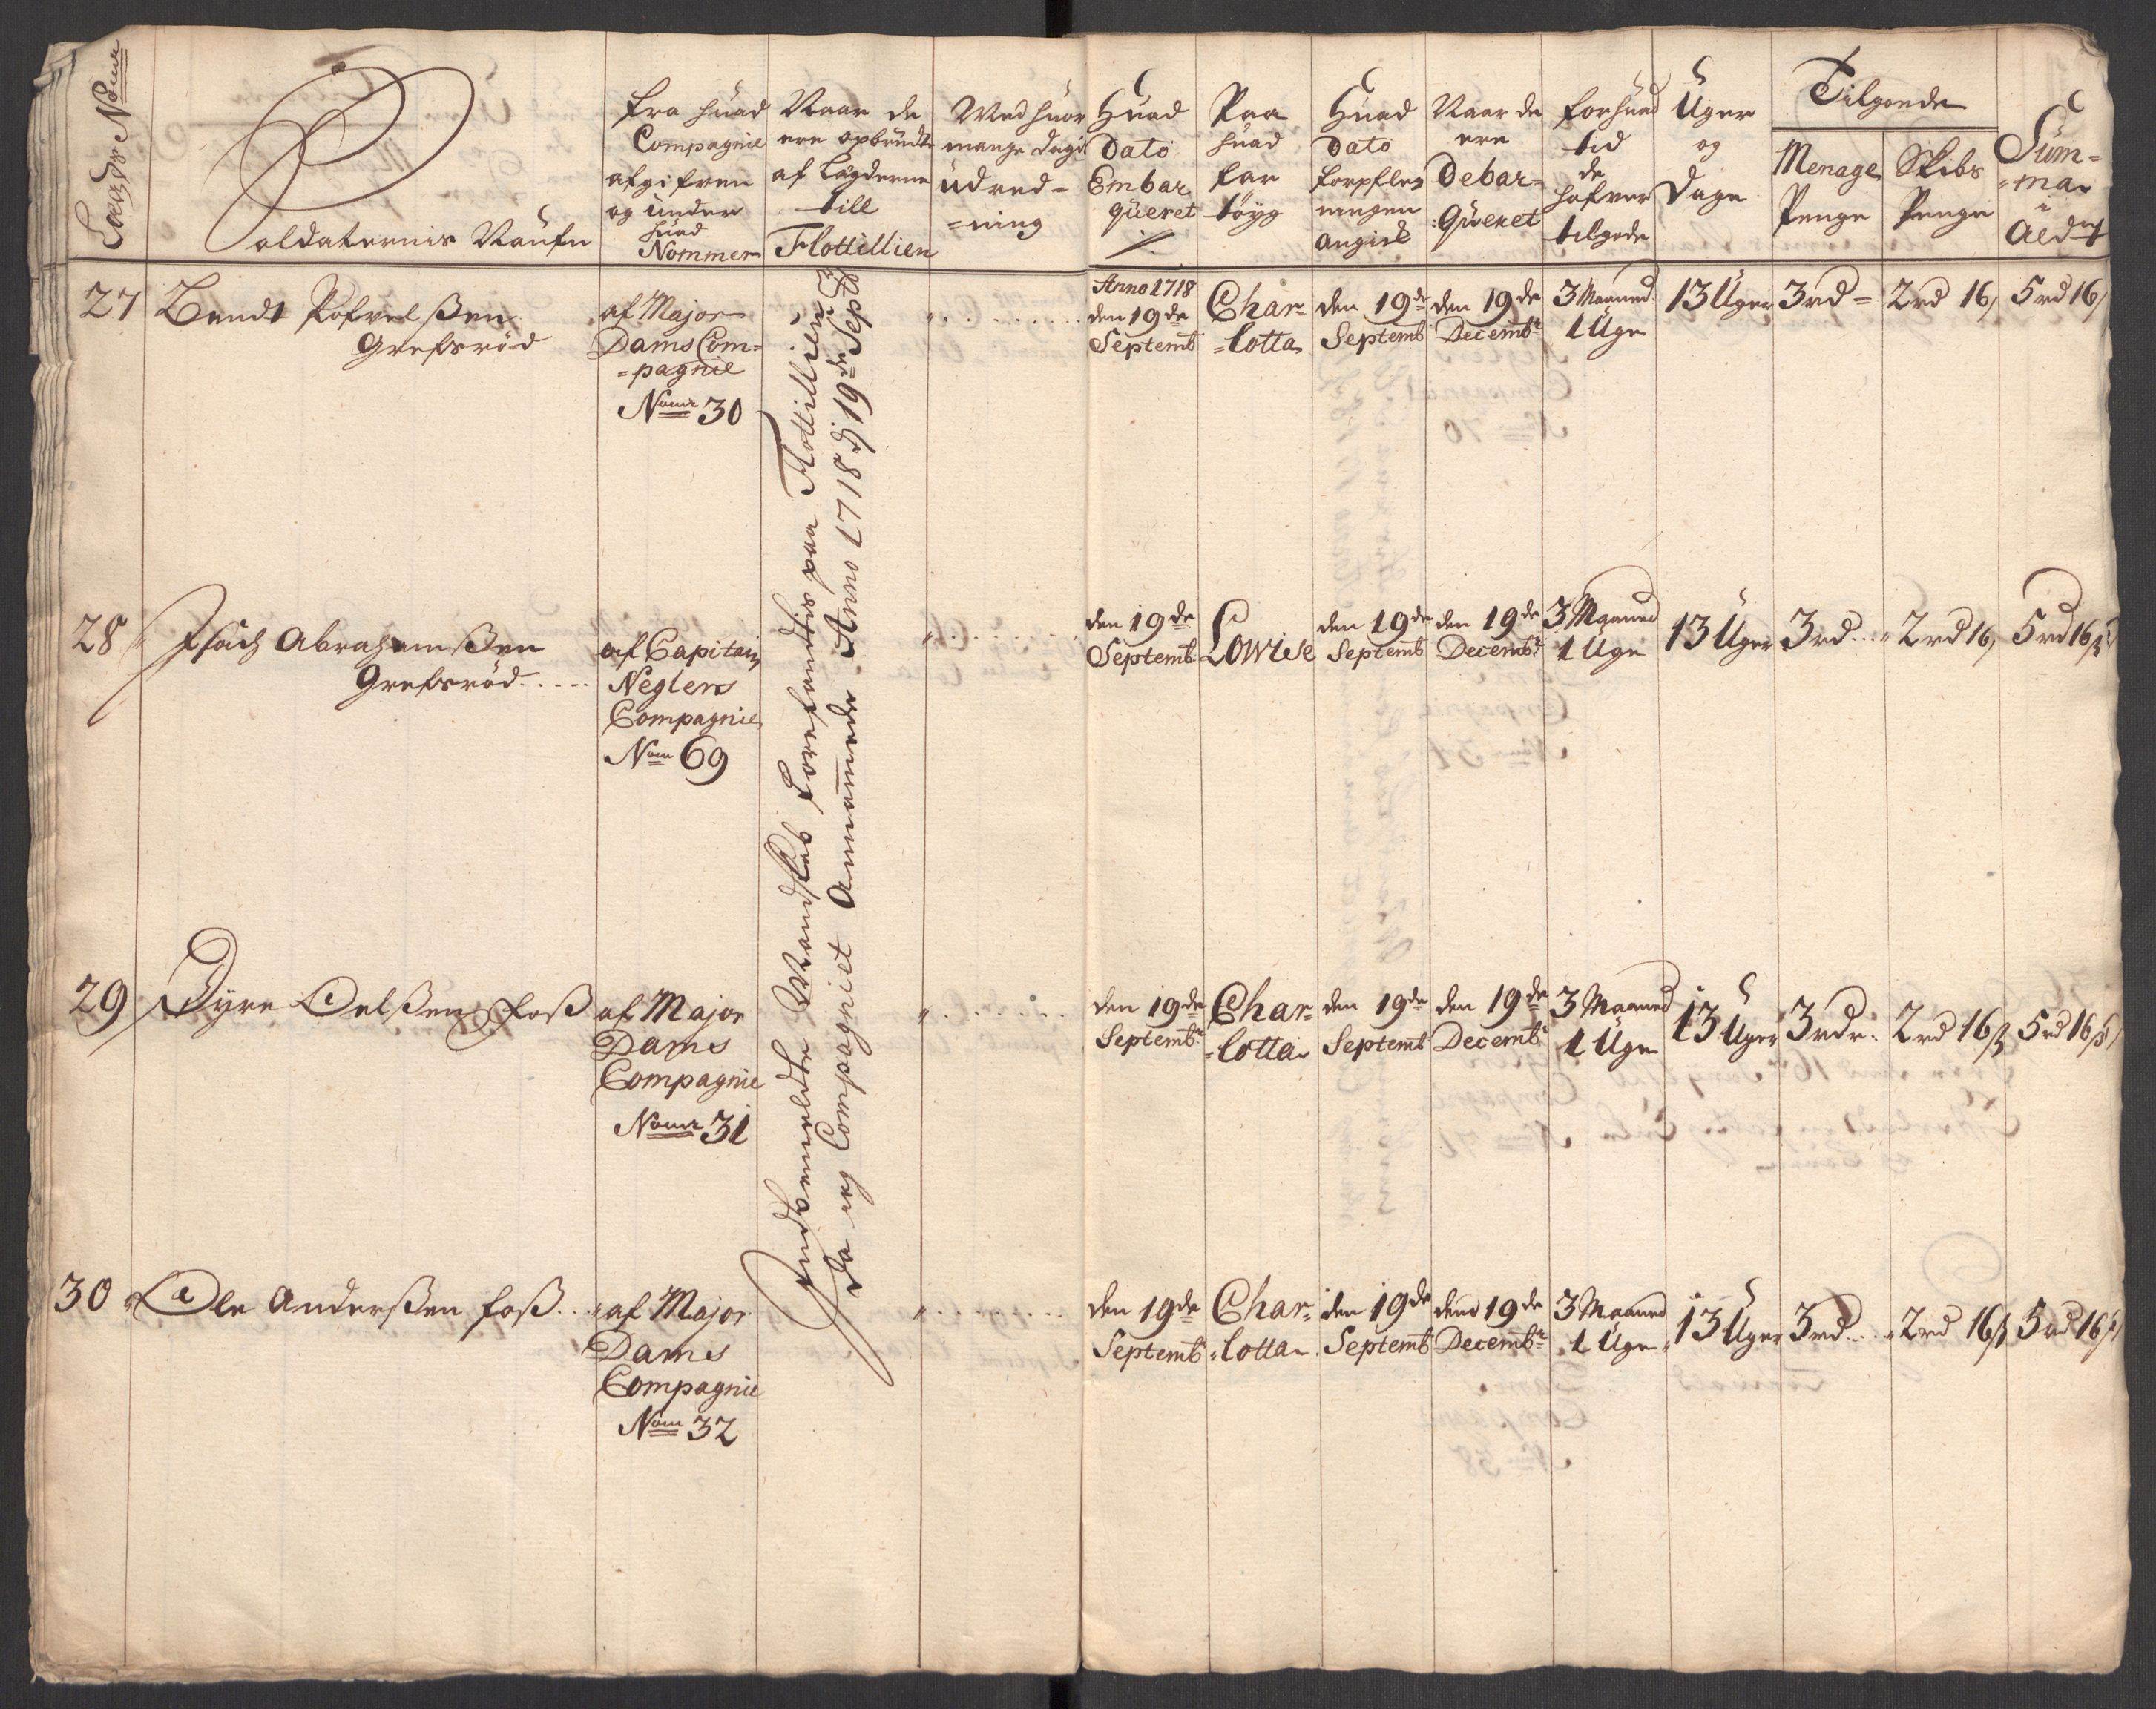 Laugds Nomr
Soldaternis Naufn
fra huad
Compagnie
afgifven
og under
huad
Nommer
Naar de
ere opbrudt
af Lagderne
till
Flottillien
Med huor
mange dagis
udred=
=ning
Huad
Dato
Embar
queret
Paa
huad
far
tøyg
Huad
Dato
forpfles
ningen
angick
Naar de
ere
Debar=
queret
for huad
tid
de
hafver
tilgode
Uger
og
Dage
Tilgonde
Menage
Penge
Skibs
Penge
Sum=
=ma
i
Alt
27 Bendt Pofvelßen
Grefsrød
af Major
Dams Com=
=pagnie
Nomr 30
Anno 1718
den 19de
Septemb
Char=
=lotta
den 19de
Septemb
den 19de
Decembr
3 Maaned
1 Uge
13 Uger
3rd =
2rd 16
5rd 16
28 Isach Abrahamßen
Grefsrød
af Capitain
Neglers
Compagnie
Nom 69
den 19de
Septemb
Lowise
den 19de
Septemb
den 19de
Decembr
3 Maaned
1 Uge
13 Uger
3rd
2rd 16
5rd 16ß
29 Dyre Oelßen Foß
af Major
Dams
Compagnie
Nomr 31
den 19de
Septembr
Char=
=lotta
den 19de
Septemb
den 19de
Decembr
3 Maaned
1 Uge
13 Uger
3rdr
2rd 16ß
5rd 16ß
30 Ole Anderßen Foß
af Major
Dams
Compagnie
Nom 32
den 19de
Septemb
Char=
=lotta
den 19de
Septemb
dend 19de
Decembr
3 Maaned
1 Uge
13 Uger
3rd
2rd 16ß
5rd 16ß
Indbemeldte Mandskab forefandtis paa Flottillien
da ieg Compagniet Annammede Anno 1718 dj 19de Septb